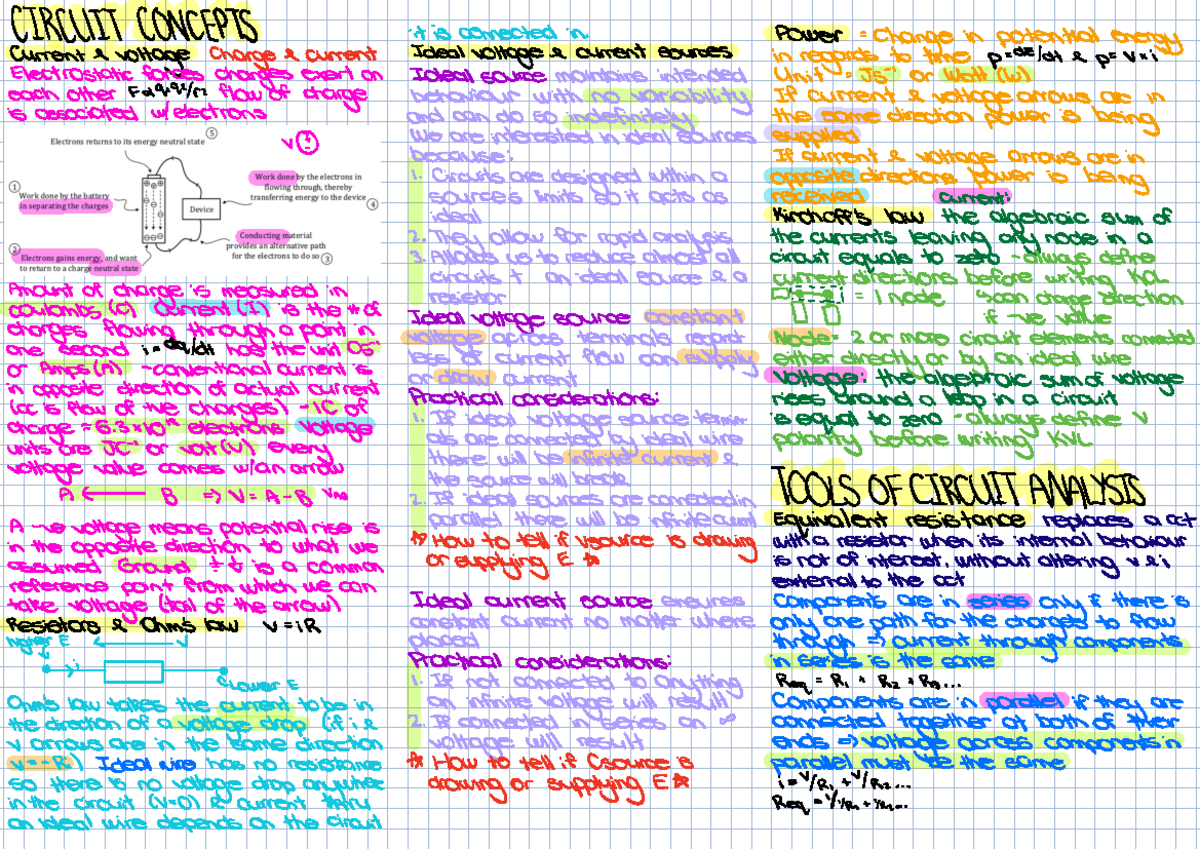 CIRCUIT CONCEPTS
Current & voltage Charge & current
Electrostatic forces charges exert on
each other F=q₁q₂/r² flow of charge
is associated w/ electrons
Electrons returns to its energy neutral state ⑤
①
Work done by the battery
in separating the charges
Device
Work done by the electrons in
flowing through, thereby
transferring energy to the device ④
②
Electrons gains energy, and want
to return to a charge neutral state
Conducting material
provides an alternative path
for the electrons to do so ③
Amount of charge is measured in
coulombs (C) Current (I) is the # of
charges flowing through a point in
one second i = dq/dt has the unit
or Amps (A) -conventional current is
in opposite direction of actual current
(cc is flow of +ve charges) -1C of
charge = 6.3×10¹⁸ electrons Voltage
units are JC⁻¹ or volt (V) every
voltage value comes w/ an arrow
A ← B => V = A - B
A -ve voltage means potential rise is
in the opposite direction to what we
assumed Ground is a common
reference point from which we can
take voltage (tail of the arrow)
Resistors & Ohms law V = iR
higher E
V
i
Lower E
Ohms law takes the current to be in
the direction of a voltage drop (if i &
v arrows are in the same direction
V = -Ri) Ideal wire has no resistance
so there is no voltage drop anywhere
in the circuit (V=0) & current thru
an ideal wire depends on the circuit
it is connected in.
Ideal voltage & current sources
Ideal source maintains intended
behaviour with no variability
and can do so indefinitely
We are interest in ideal sources
because:
1. Circuits are designed within a
sources limits so it acts as
ideal
2. They allow for rapid analysis
3. Allows us to reduce almost all
circuits to an ideal source & a
resistor
Ideal voltage source constant
voltage across terminals regardt
less of current flow can supply
or draw current
Practical considerations:
1. If ideal voltage source termin
als are connected by ideal wire
there will be infinite current &
the source will break
2. If ideal sources are connected in
parallel there will be infinite current
☆ How to tell if vsource is drawing
or supplying E ☆
Ideal current source ensures
constant current no matter where
placed
Practical considerations:
1. If not connected to anything
an infinite voltage will result
2. If connected in series an ∞
voltage will result
☆ How to tell if Csource is
drawing or supplying E ☆
Power = Change in potential energy
in regards to time p = dE/dt & p = V×i
Unit = Js⁻¹ or Watt (W)
If current & voltage arrows are in
the same direction power is being
supplied
If current & voltage arrows are in
opposite directions power is being
received
Current:
Kirchoff's law the algebraic sum of
the currents leaving any node in a
circuit equals to zero -always define
current directions before writing KCL
= 1 node
direction
if -ve value
Node: 2 or more circuit elements connected
either directly or by an ideal wire
Voltage: the algebraic sum of voltage
rises around a loop in a circuit
is equal to zero -always define V
polarity before writing KVL
TOOLS OF CIRCUIT ANALYSIS
Equivalent resistance replaces a cct
with a resistor when its internal behaviour
is not of interest, without altering v & i
external to the cct
Components are in series only if there is
only one path for the charges to flow
through => current through components
in series is the same
Req = R₁ + R₂ + R₃...
Components are in parallel if they are
connected together at both of their
ends => voltage across components in
parallel must be the same
i = V/R₁ + V/R₂ ...
Req = 1/1/R₁ + 1/R₂...